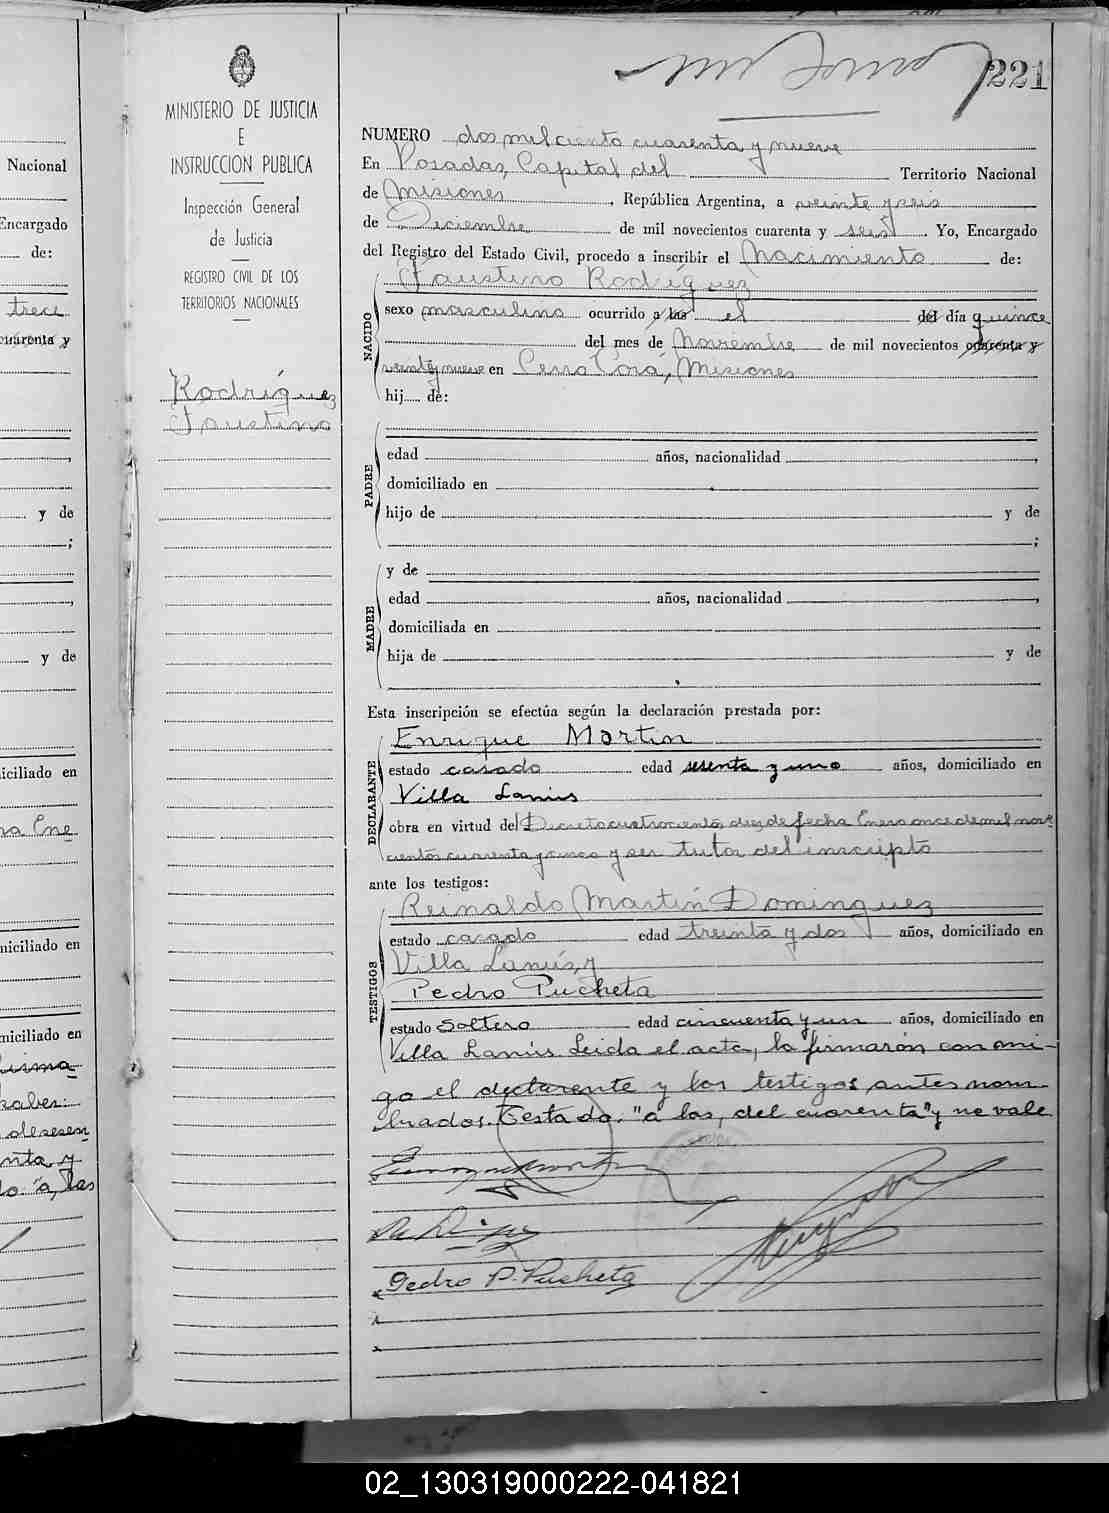 Nacional
Encargado
de:
trece
cuarenta y
y de
;
y de
iciliado en
niciliado en
niciliado en
y
"a, las
MINISTERIO DE JUSTICIA
E
INSTRUCCION PUBLICA
Inspección General
de Justicia
REGISTRO CIVIL DE LOS
TERRITORIOS NACIONALES
Rodríguez
Faustino
221
NUMERO dos mil ciento cuarenta y nueve
En Posadas, Capital del Territorio Nacional
de Misiones, República Argentina, a veinte y seis
de Diciembre de mil novecientos cuarenta y seis. Yo, Encargado
del Registro del Estado Civil, procedo a inscribir el Nacimiento de:
NACIDO
Faustino Rodríguez
sexo masculino ocurrido a las el del día quince
del mes de Noviembre de mil novecientos cuarenta y
veinte y nueve en Cerro Corá, Misiones
hij de:
PADRE
edad años, nacionalidad ,
domiciliado en
hijo de y de
;
MADRE
y de
edad años, nacionalidad ,
domiciliada en
hija de y de
Esta inscripción se efectúa según la declaración prestada por:
DECLARANTE
Enrique Martin
estado casado edad sesenta y uno años, domiciliado en
Villa Lanús
obra en virtud del Decreto cuatrocientos diez de fecha Enero once de mil nove-
cientos cuarenta y cinco y ser tutor del inscripto
ante los testigos:
TESTIGOS
Reinaldo Martín Dominguez
estado casado edad treinta y dos años, domiciliado en
Villa Lanús, y
Pedro Pucheta
estado Soltero edad cincuenta y un años, domiciliado en
Villa Lanús. Leida el acta, la firmarón conmi-
go el declarante y los testigos antes nom-
brados. Testado: "a las, del cuarenta" y no vale
Pedro P. Pucheta
02_130319000222-041821